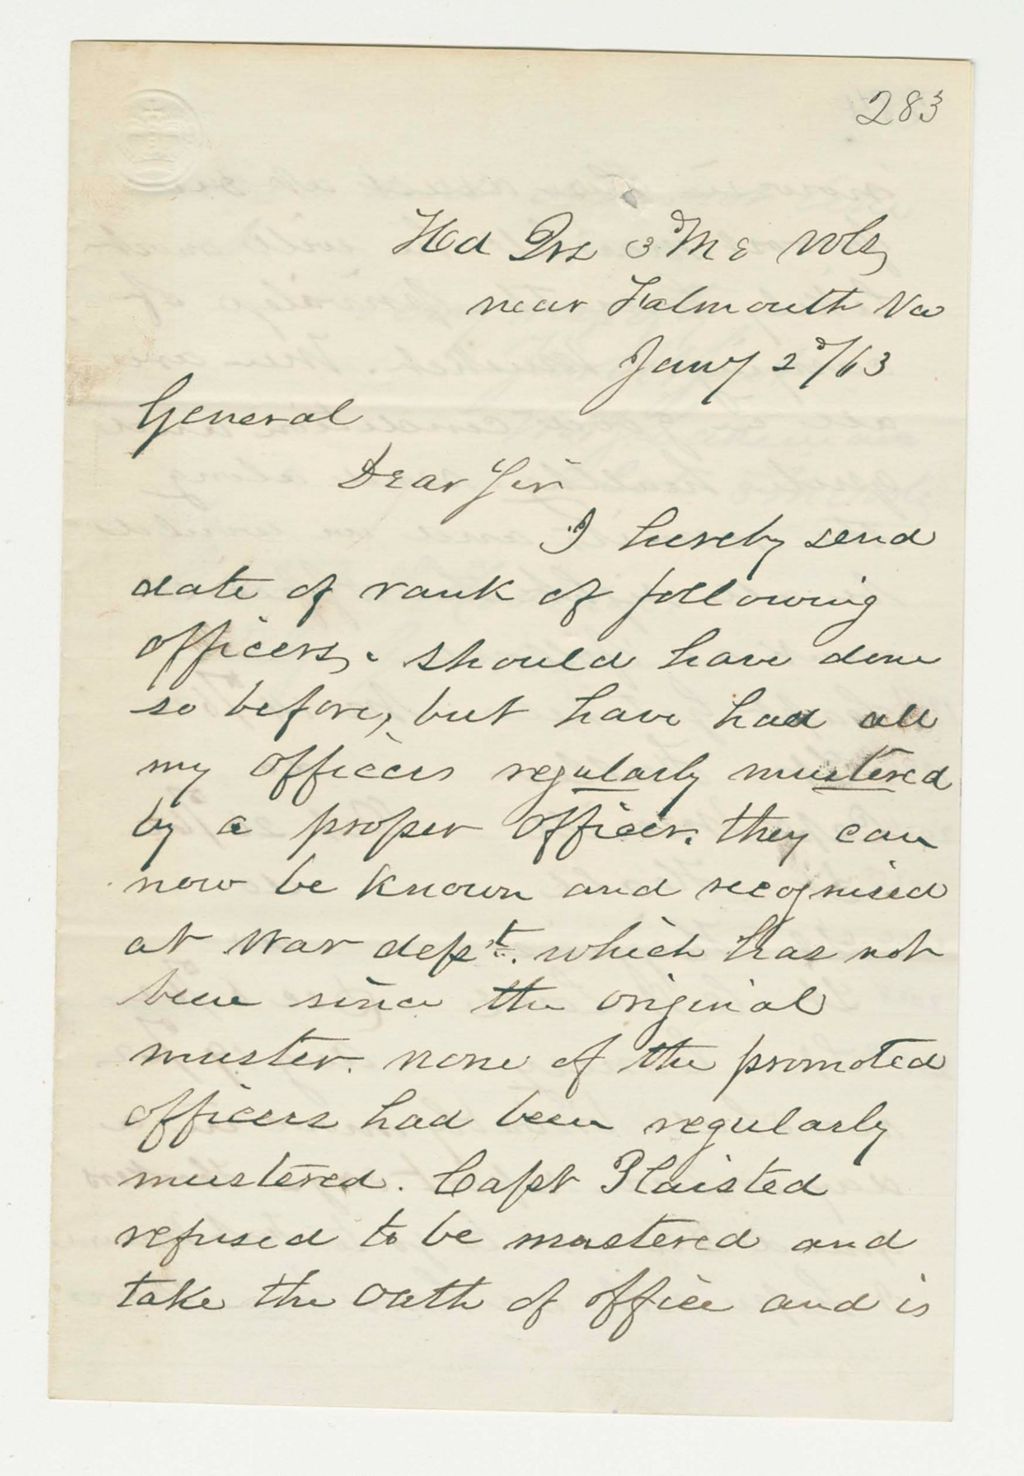 283
Hd Qrs 3d Me Vols
near Falmouth Va
Jany 2d/63
General
Dear Sir
I hereby send
date of rank of following
officers, should have done
so before, but have had all
my officers regularly mustered
by a proper officer. they can
now be known and recognised
at War dept. which has not
been since the original
muster. none of the promoted
officers had been regularly
mustered. Capt Plaisted
refused to be mustered and
take the oath of office and is